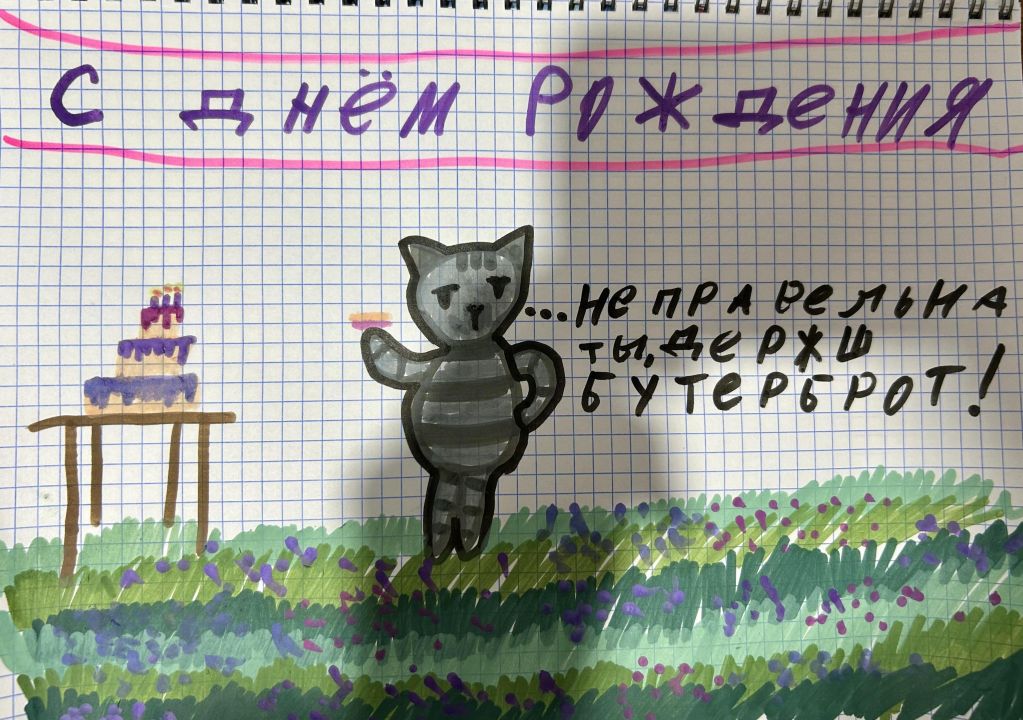 С ДНЁМ РОЖДЕНИЯ
...НЕПРАВЕЛЬНА
ТЫ, ДЕРЖШ
БУТЕРБРОТ!